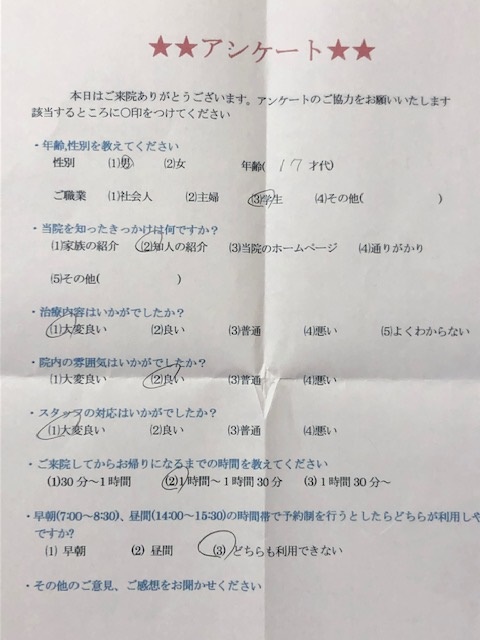 ★★アンケート★★
本日はご来院ありがとうございます。アンケートのご協力をお願いいたします
該当するところに〇印をつけてください
・年齢,性別を教えてください
性別 (1)男 (2)女 年齢( 17 才代)
ご職業 (1)社会人 (2)主婦 (3)学生 (4)その他( )
・当院を知ったきっかけは何ですか？
(1)家族の紹介 (2)知人の紹介 (3)当院のホームページ (4)通りがかり
(5)その他( )
・治療内容はいかがでしたか？
(1)大変良い (2)良い (3)普通 (4)悪い (5)よくわからない
・院内の雰囲気はいかがでしたか？
(1)大変良い (2)良い (3)普通 (4)悪い
・スタッフの対応はいかがでしたか？
(1)大変良い (2)良い (3)普通 (4)悪い
・ご来院してからお帰りになるまでの時間を教えてください
(1)30分～1時間 (2)1時間～1時間30分 (3)1時間30分～
・早朝(7:00～8:30)、昼間(14:00～15:30)の時間帯で予約制を行うとしたらどちらが利用しや
ですか?
(1) 早朝 (2) 昼間 (3) どちらも利用できない
・その他のご意見、ご感想をお聞かせください